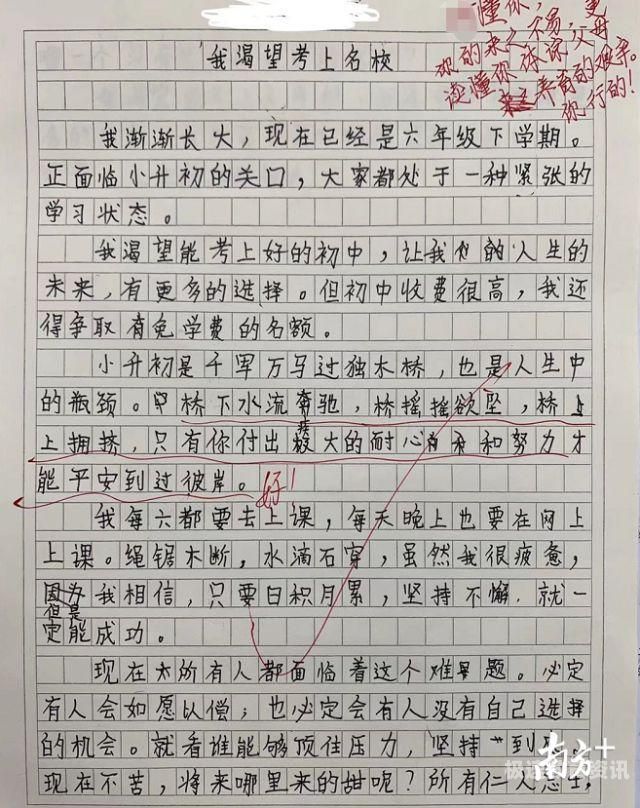 懂你，更
我渴望考上名校
我渐渐长大，现在已经是六年级下学期。
正面临小升初的关口，大家都处于一种紧张的
学习状态。
我渴望能考上好的初中，让我的人生的
未来，有更多的选择。但初中收费很高，我还
得争取有免学费的名额。
小升初是千军万马过独木桥，也是人生中
的瓶颈。桥下水流奔驰，桥摇摇欲坠，桥上
上拥挤，只有你付出极大的耐心和努力才
能平安到过彼岸。好！
我每六都要去上课，每天晚上也要在网上
上课。绳锯木断，水滴石穿，虽然我很疲惫，
但是我相信，只要日积月累，坚持不懈，就一
定能成功。
现在所有人都面临着这个难题。必定
有人会如愿以偿；也必定会有人没有自己选择
的机会。就看谁能够顶住压力，坚持到
现在不苦，将来哪里来的甜呢？所有仁人志士，
的来之不易，
这懂你体谅父母
养育的艰辛。
你行的！
南方+